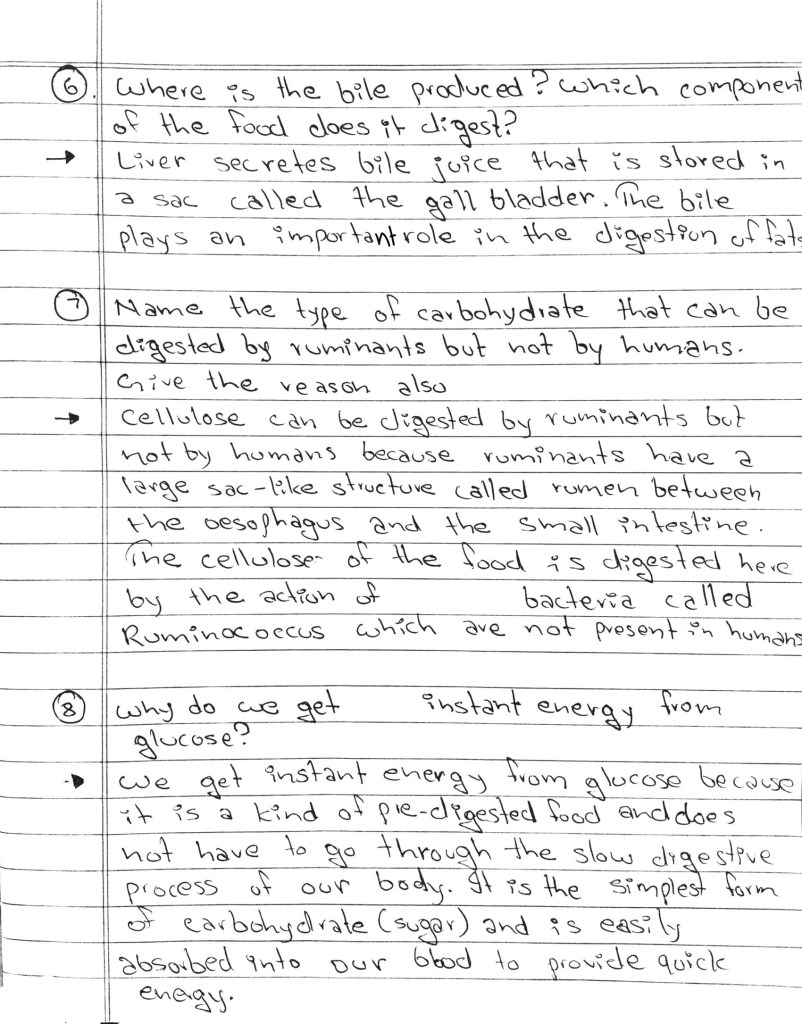 6. Where is the bile produced? Which component
of the food does it digest?
→ Liver secretes bile juice that is stored in
a sac called the gall bladder. The bile
plays an important role in the digestion of fats
7 Name the type of carbohydrate that can be
digested by ruminants but not by humans.
Give the reason also
→ Cellulose can be digested by ruminants but
not by humans because ruminants have a
large sac-like structure called rumen between
the oesophagus and the small intestine.
The cellulose of the food is digested here
by the action of bacteria called
Ruminococcus which are not present in humans
8 Why do we get instant energy from
glucose?
→ We get instant energy from glucose because
it is a kind of pre-digested food and does
not have to go through the slow digestive
process of our body. It is the simplest form
of carbohydrate (sugar) and is easily
absorbed into our blood to provide quick
energy.